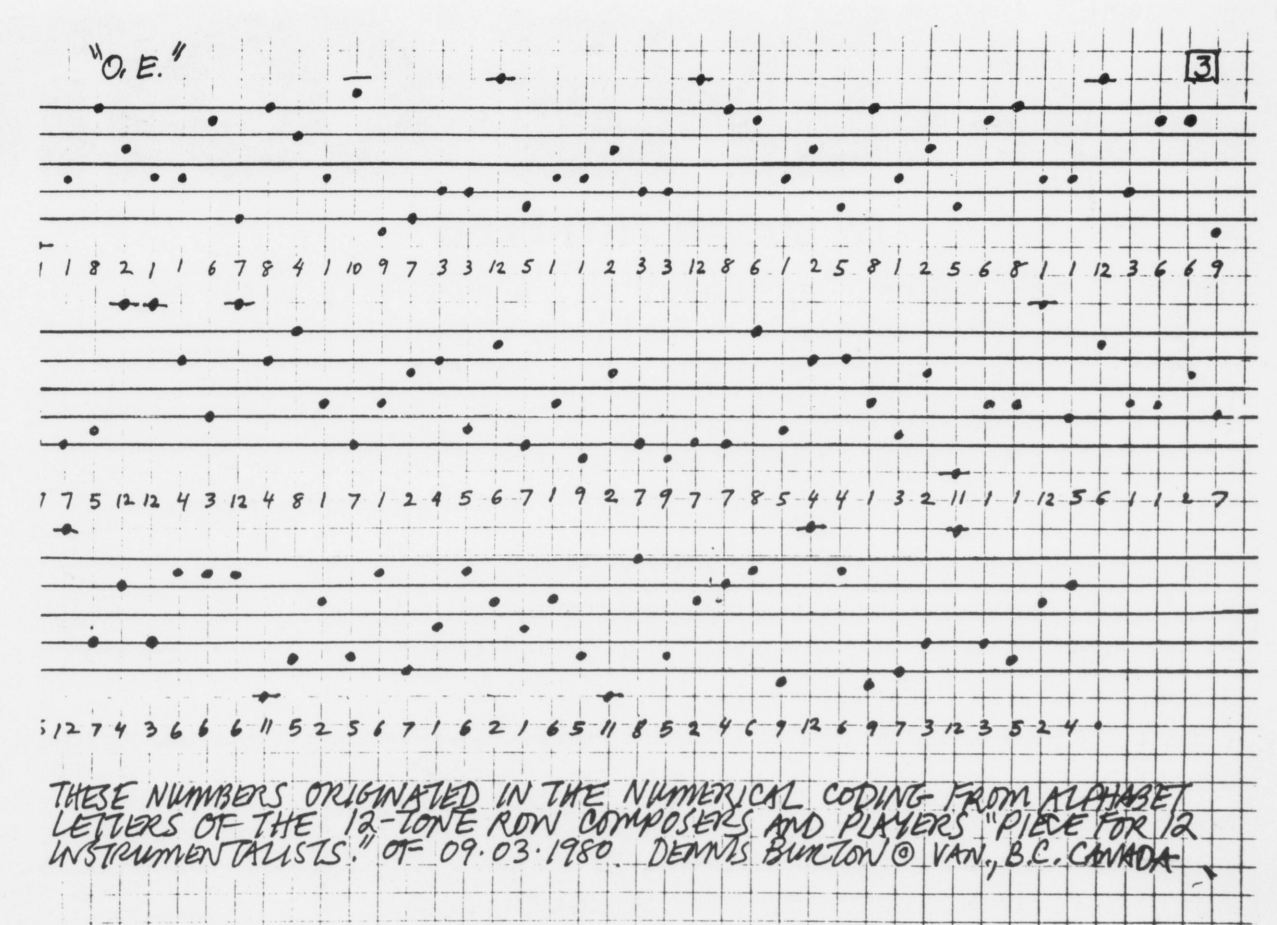 "O. E." 3
1 1 8 2 1 1 6 7 8 4 1 10 9 7 3 3 12 5 1 1 2 3 3 12 8 6 1 2 5 8 1 2 5 6 8 1 1 12 3 6 6 9
7 5 12 12 4 3 12 4 8 1 7 1 2 4 5 6 7 1 9 2 7 9 7 7 8 5 4 4 1 3 2 11 1 1 12 5 6 1 1 2 7
12 7 4 3 6 6 6 11 5 2 5 6 7 1 6 2 1 6 5 11 8 5 2 4 6 9 12 6 9 7 3 12 3 5 2 4
THESE NUMBERS ORIGINATED IN THE NUMERICAL CODING FROM ALPHABET
LETTERS OF THE 12-TONE ROW COMPOSERS AND PLAYERS "PIECE FOR 12
INSTRUMENTALISTS." OF 09.03.1980. DENNIS BURTON © VAN., B.C. CANADA